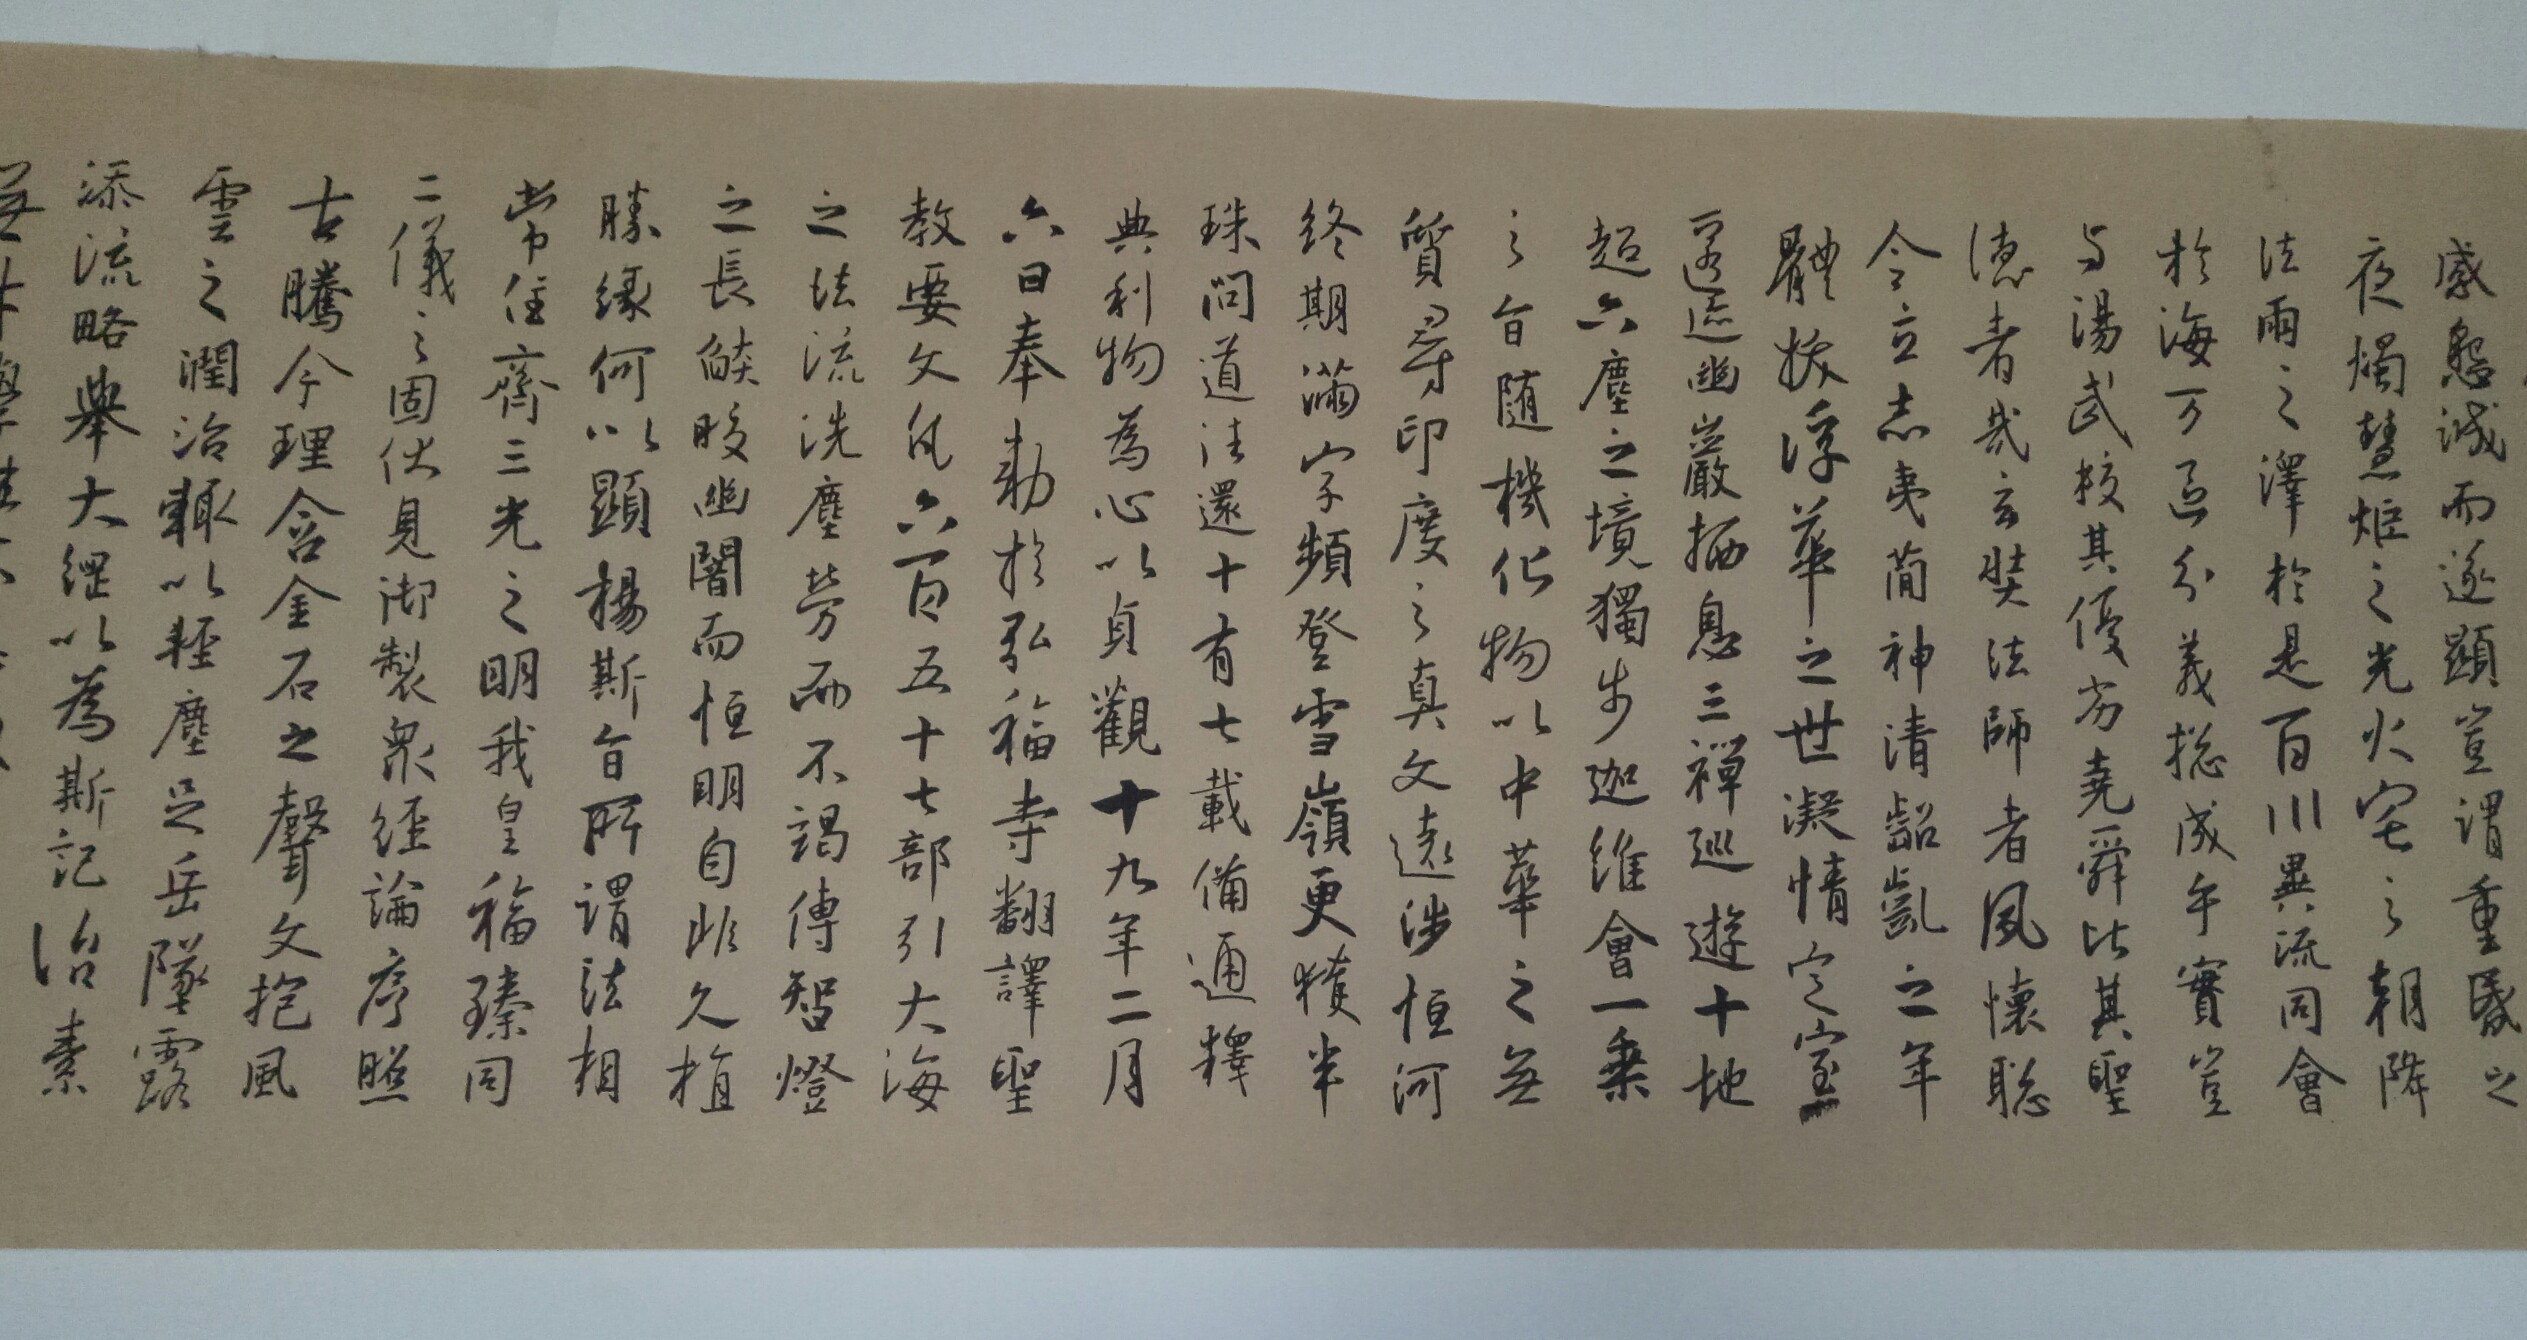 感懇誠而遂顯豈謂重昏之
夜燭慧炬之光火宅之朝降
法雨之澤於是百川異流同會
於海万區分義捴成乎實豈
与湯武校其優劣堯舜比其聖
德者哉玄奘法師者風懷聡
令立志夷簡神清齠齔之年
體拔浮華之世凝情定室
匿迹幽巖栖息三禪巡遊十地
超六塵之境獨步迦維會一乗
之旨随機化物以中華之無
質尋印度之真文遠涉恒河
終期滿字頻登雪嶺更獲半
珠問道法還十有七載備通釋
典利物為心以貞觀十九年二月
六日奉勅於弘福寺翻譯聖
教要文凡六百五十七部引大海
之法流洗塵勞而不竭傳智燈
之長焰皎幽闇而恒明自非久植
勝緣何以顯揚斯旨所謂法相
常住齊三光之明我皇福臻同
二儀之固伏見御製衆経論序照
古騰今理含金石之聲文抱風
雲之潤治輒以輕塵足岳墜露
添流略舉大綱以為斯記治素
無